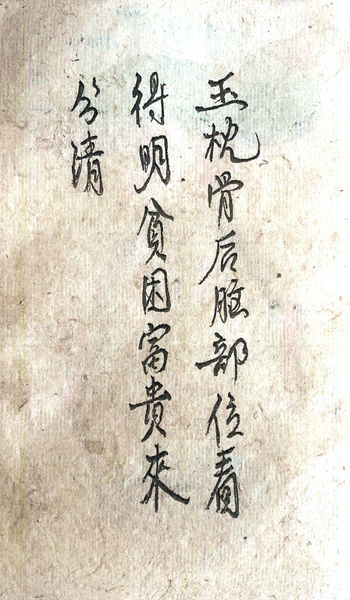 玉枕骨后脑部位看
得明贫困富貴來
分清